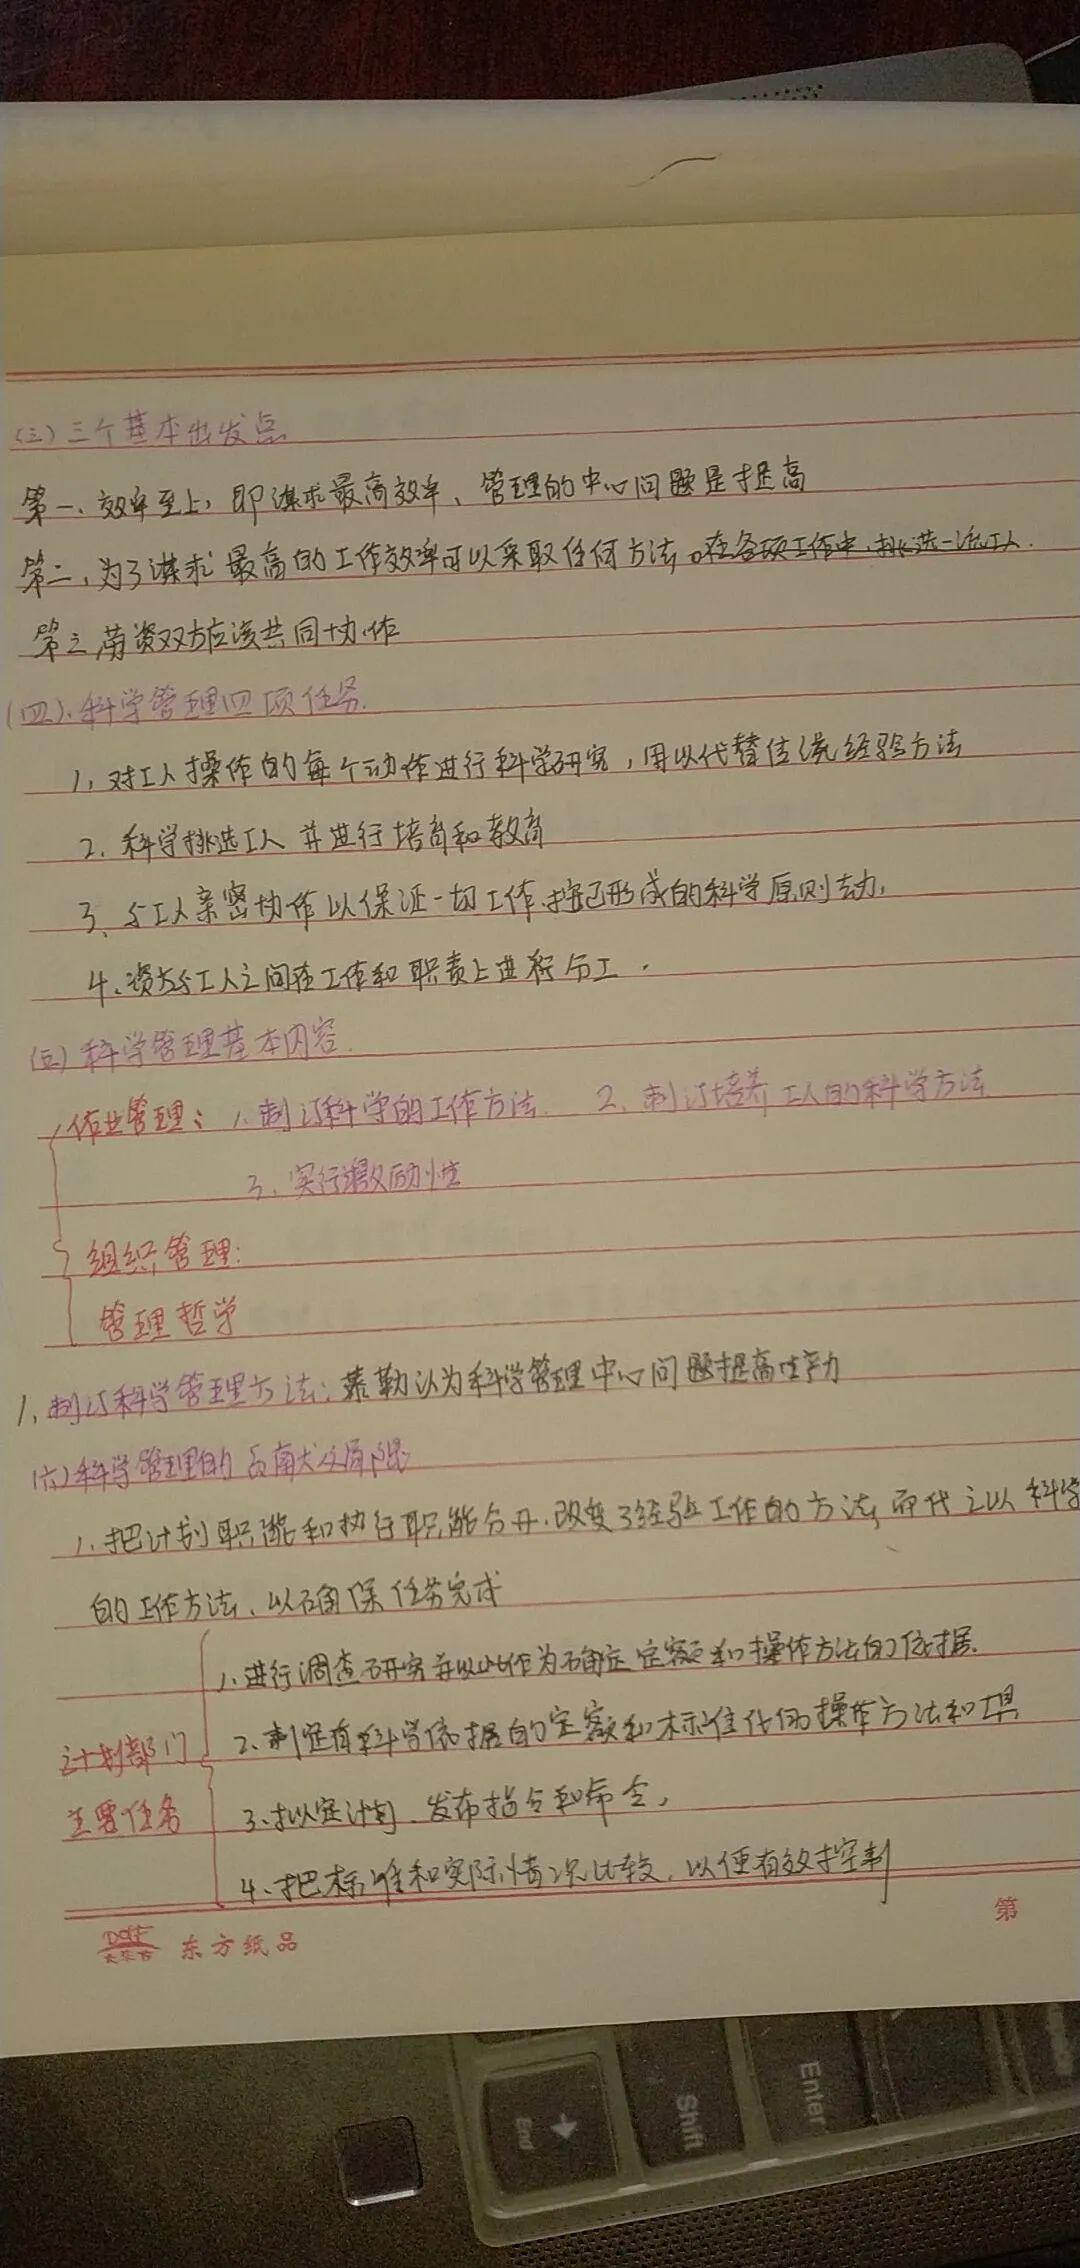 (三)三个基本出发点
第一、效率至上，即谋求最高效率、管理的中心问题是提高
第二，为了谋求最高的工作效率可以采取任何方法。在各项工作中，挑选一流工人.
第三，劳资双方应该共同协作
(四).科学管理四项任务.
1，对工人操作的每个动作进行科学研究，用以代替传统经验方法
2．科学挑选工人 并进行培育和教育
3、与工人亲密协作以保证一切工作.按已形成的科学原则去办，
4、资方与工人之间在工作和职责上进行分工．
(五)科学管理基本内容.
作业管理：1.制订科学的工作方法. 2、制订培养工人的科学方法
3、实行激励性
组织管理：
管理哲学
1、制订科学管理方法：泰勒认为科学管理中心问题提高生产力
(六)科学管理的贡献及局限
1、把计划职能和执行职能分开.改变了经验工作的方法，而代之以科学
的工作方法、以确保任务完成
1、进行调查研究并以此作为确定定额和操作方法的依据.
计划部门 2、制定有科学依据的定额和标准化的操作方法和工具
主要任务 3、拟定计划、发布指令和命令，
4、把标准和实际情况比较，以便有效控制
第
东方纸品
Enter
Shift
End